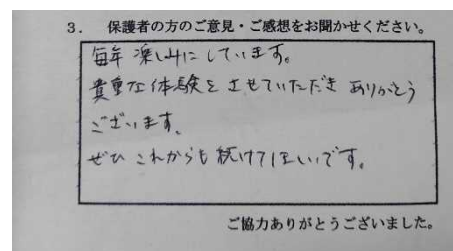 3. 保護者の方のご意見・ご感想をお聞かせください。
毎年楽しみにしています。
貴重な体験をさせていただきありがとう
ございます。
ぜひこれからも続けてほしいです。
ご協力ありがとうございました。